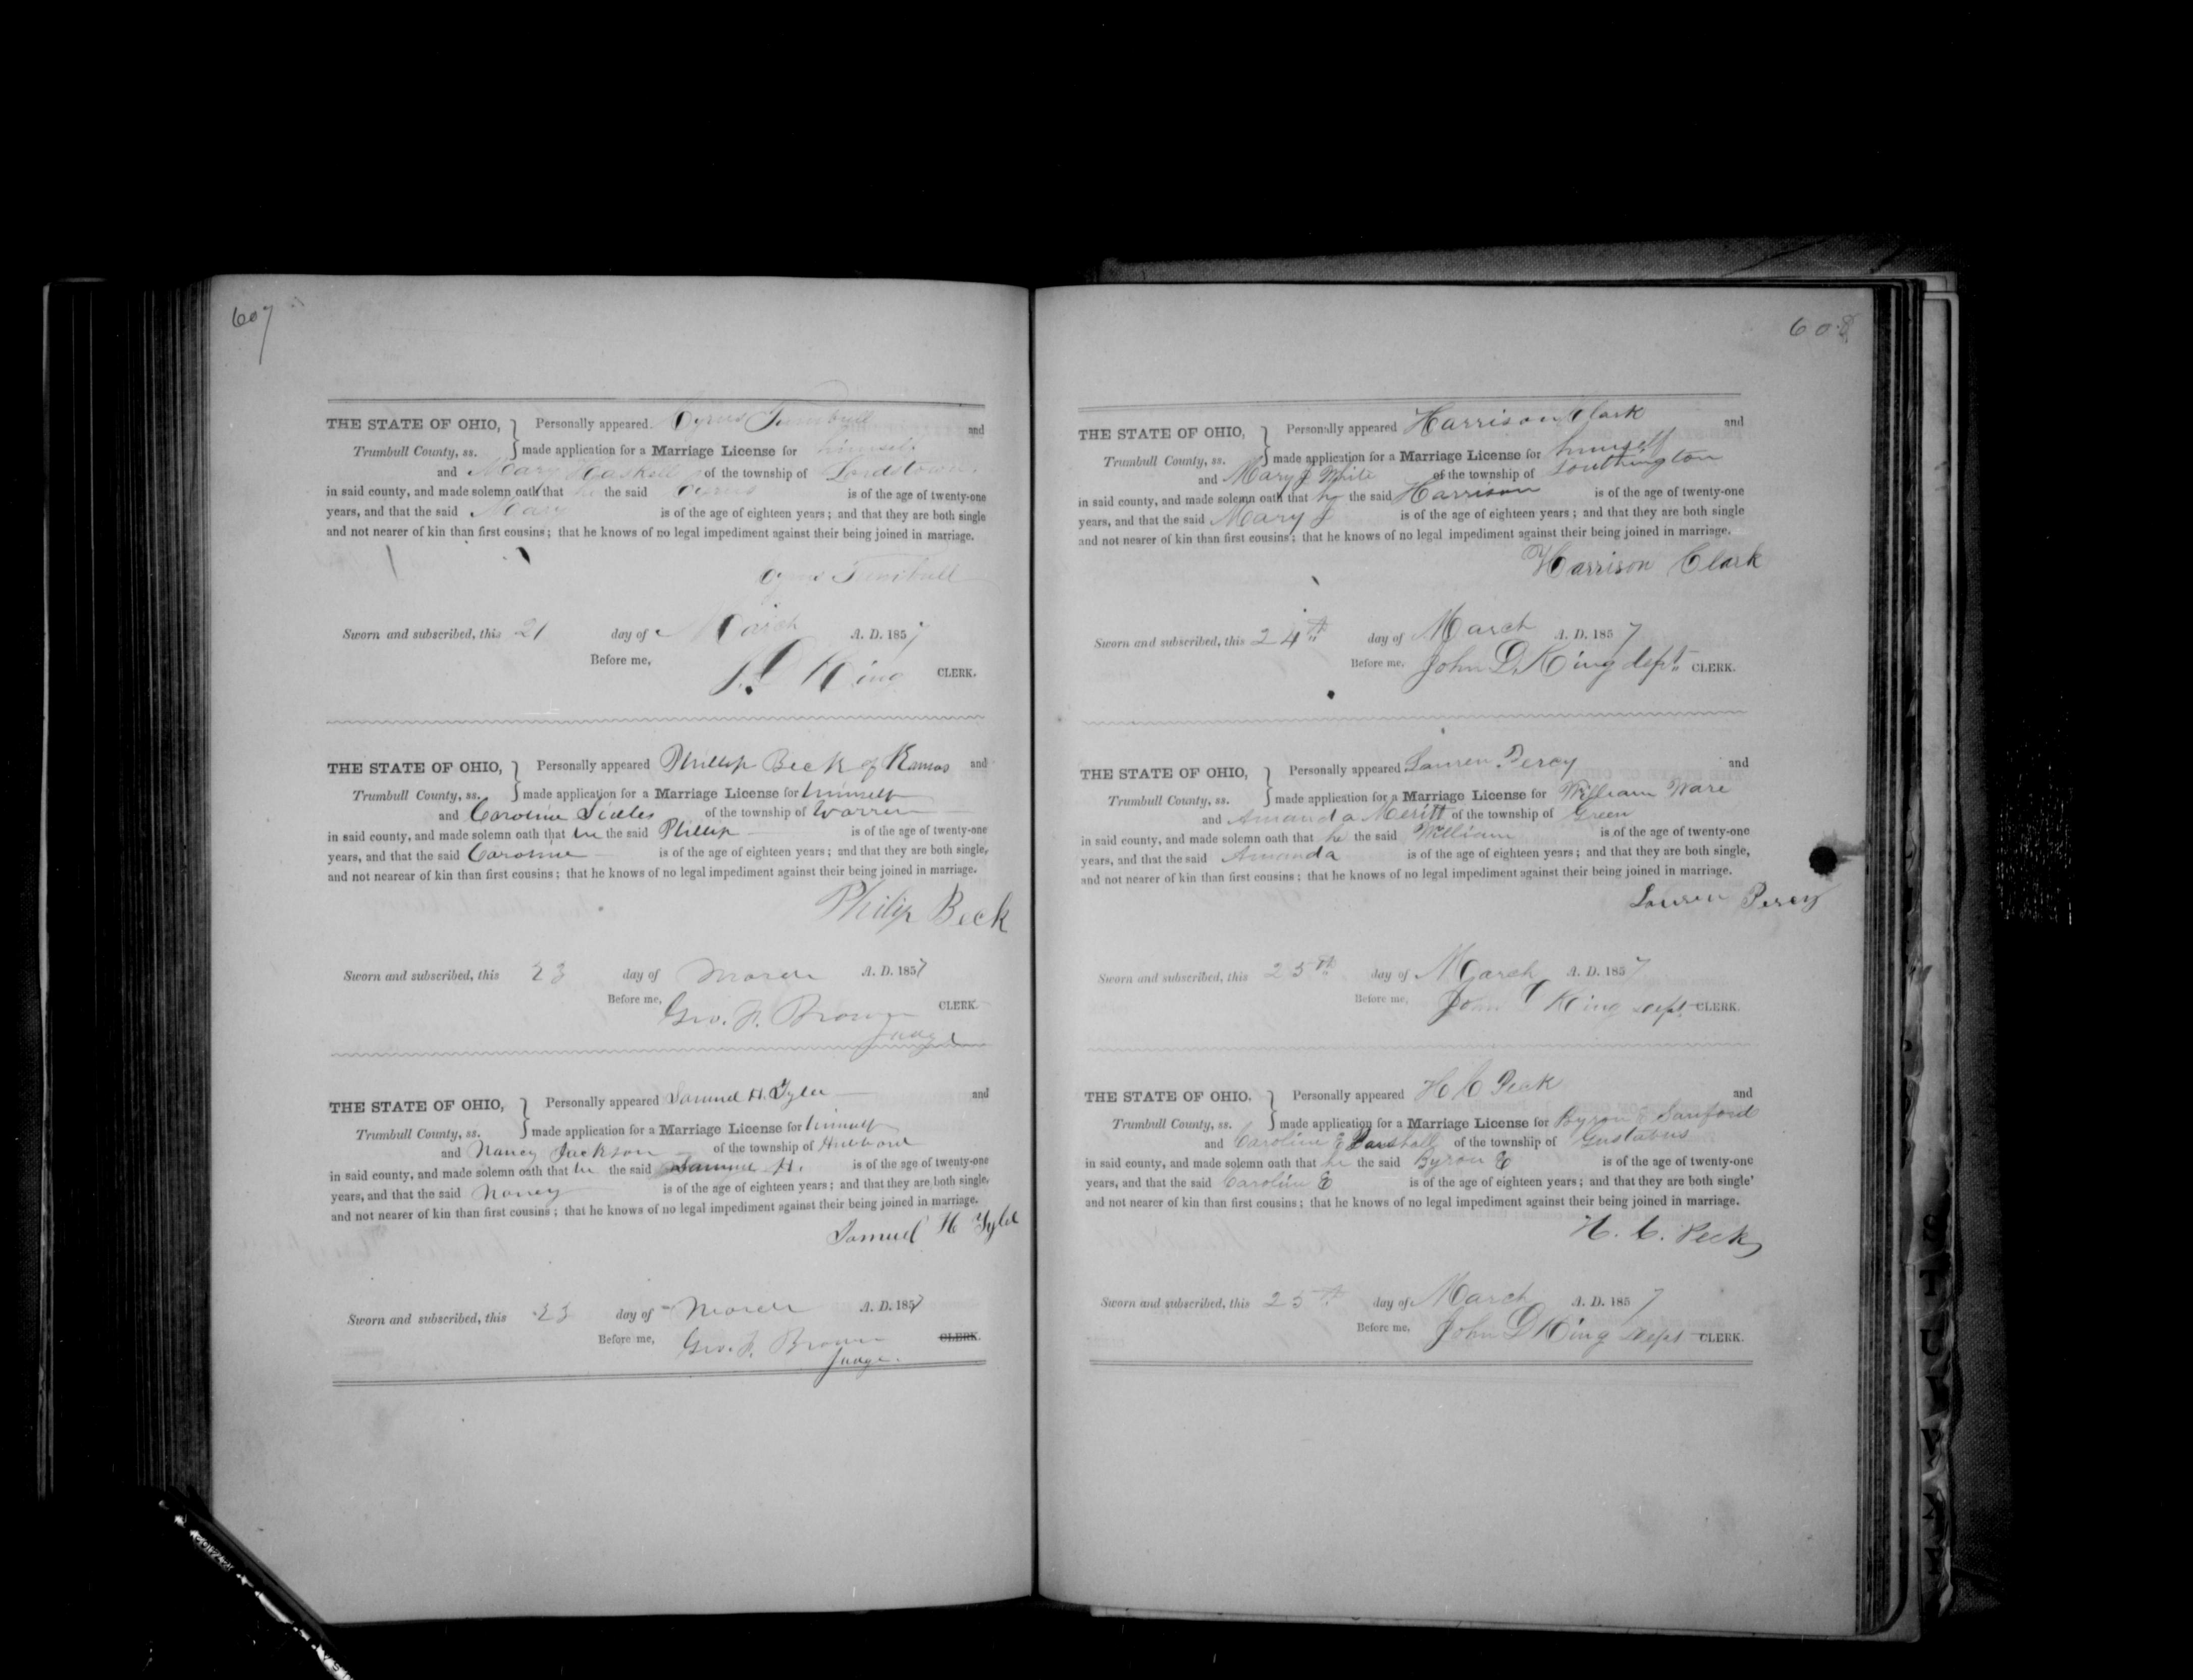 607
THE STATE OF OHIO, } Personally appeared Cyrus Turnbull and
Trumbull County, ss. } made application for a Marriage License for himself
and Mary Haskell of the township of Lordstown
in said county, and made solemn oath that he the said Cyrus is of the age of twenty-one
years, and that the said Mary is of the age of eighteen years; and that they are both single
and not nearer of kin than first cousins; that he knows of no legal impediment against their being joined in marriage.
Cyrus Turnbull
Sworn and subscribed, this 21 day of March A. D. 1857
Before me, J. D King CLERK.
THE STATE OF OHIO, } Personally appeared Phillip Beck of Kansas and
Trumbull County, ss. } made application for a Marriage License for himself
and Caroline of the township of Warren
in said county, and made solemn oath that he the said Phillip is of the age of twenty-one
years, and that the said Caroline is of the age of eighteen years; and that they are both single,
and not nearear of kin than first cousins; that he knows of no legal impediment against their being joined in marriage.
Philip Beck
Sworn and subscribed, this 23 day of March A. D. 1857
Before me, Geo. F. Brown CLERK.
Judge
THE STATE OF OHIO, } Personally appeared Samuel H. Tyler and
Trumbull County, ss. } made application for a Marriage License for himself
and Nancy Jackson of the township of Hubbard
in said county, and made solemn oath that he the said Samuel H. is of the age of twenty-one
years, and that the said Nancy is of the age of eighteen years; and that they are both single,
and not nearer of kin than first cousins; that he knows of no legal impediment against their being joined in marriage.
Samuel H Tyler
Sworn and subscribed, this 23 day of March A. D. 1857
Before me, Geo. F. Brown CLERK.
Judge.
608
THE STATE OF OHIO, } Personally appeared Harrison Clark and
Trumbull County, ss. } made application for a Marriage License for himself
and Mary J White of the township of Southington
in said county, and made solemn oath that he the said Harrison is of the age of twenty-one
years, and that the said Mary J is of the age of eighteen years; and that they are both single
and not nearer of kin than first cousins; that he knows of no legal impediment against their being joined in marriage.
Harrison Clark
Sworn and subscribed, this 24th day of March A. D. 1857
Before me, John D. King dept. CLERK.
THE STATE OF OHIO, } Personally appeared Lauren Percy and
Trumbull County, ss. } made application for a Marriage License for William Ware
and Amanda Merritt of the township of Green
in said county, and made solemn oath that he the said William is of the age of twenty-one
years, and that the said Amanda is of the age of eighteen years; and that they are both single,
and not nearer of kin than first cousins; that he knows of no legal impediment against their being joined in marriage.
Lauren Percy
Sworn and subscribed, this 25th day of March A. D. 1857
Before me, John D King dept CLERK.
THE STATE OF OHIO. } Personally appeared H C Peck and
Trumbull County, ss. } made application for a Marriage License for Byron E Sanford
and Caroline E of the township of Gustavus
in said county, and made solemn oath that he the said Byron E is of the age of twenty-one
years, and that the said Caroline E is of the age of eighteen years; and that they are both single'
and not nearer of kin than first cousins; that he knows of no legal impediment against their being joined in marriage.
H. C. Peck
Sworn and subscribed, this 25th day of March A. D. 1857
Before me, John D King dept CLERK.